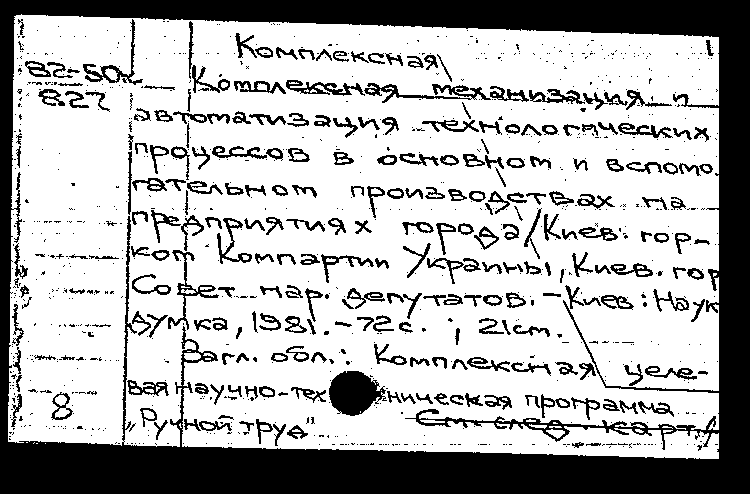 Комплексная
82-50
827
Комплексная механизация и
автоматизация технологических
процессов в основном и вспомо
гательном производствах на
предприятиях города/Киев. гор-
ком Компартии Украины, Киев. гор
Совет нар. депутатов. – Киев: Наук
думка, 1981. – 72с. ; 21см.
Загл. обл.: Комплексная целе-
вая научно-техническая программа
8
„Ручной труд“. См. след. карт.